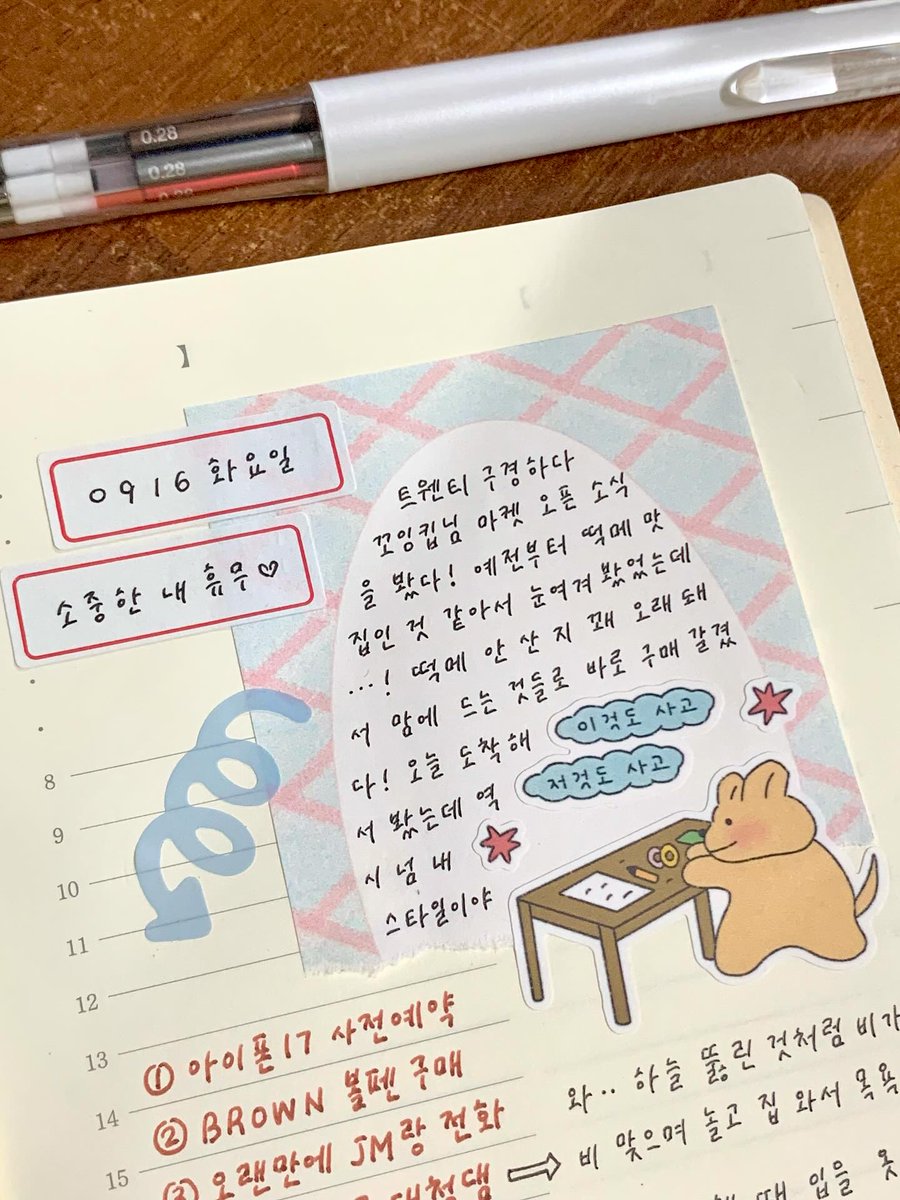 0.28
0.28
0.28
0916 화요일
소중한 내 휴무♡
트웬티 구경하다
꼬잉킵님 마켓 오픈 소식
을 봤다! 예전부터 떡메 맛
집인 것 같아서 눈여겨 봤었는데
...! 떡메 안 산 지 꽤 오래 돼
서 맘에 드는 것들로 바로 구매 갈겼
다! 오늘 도착해
서 봤는데 역
시 넘 내
스타일이야
이것도 사고
저것도 사고
8
9
10
11
12
13
14
15
① 아이폰17 사전예약
② BROWN 볼펜 구매
③ 오랜만에 JM랑 전화
와.. 하늘 뚫린 것처럼 비가
비 맞으며 놀고 집 와서 목욕
때 입을 옷